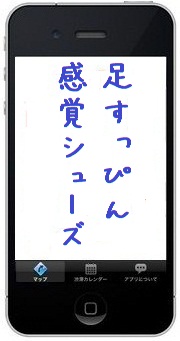 足すっぴん
感覚シューズ
マップ
渋滞カレンダー
アプリについて